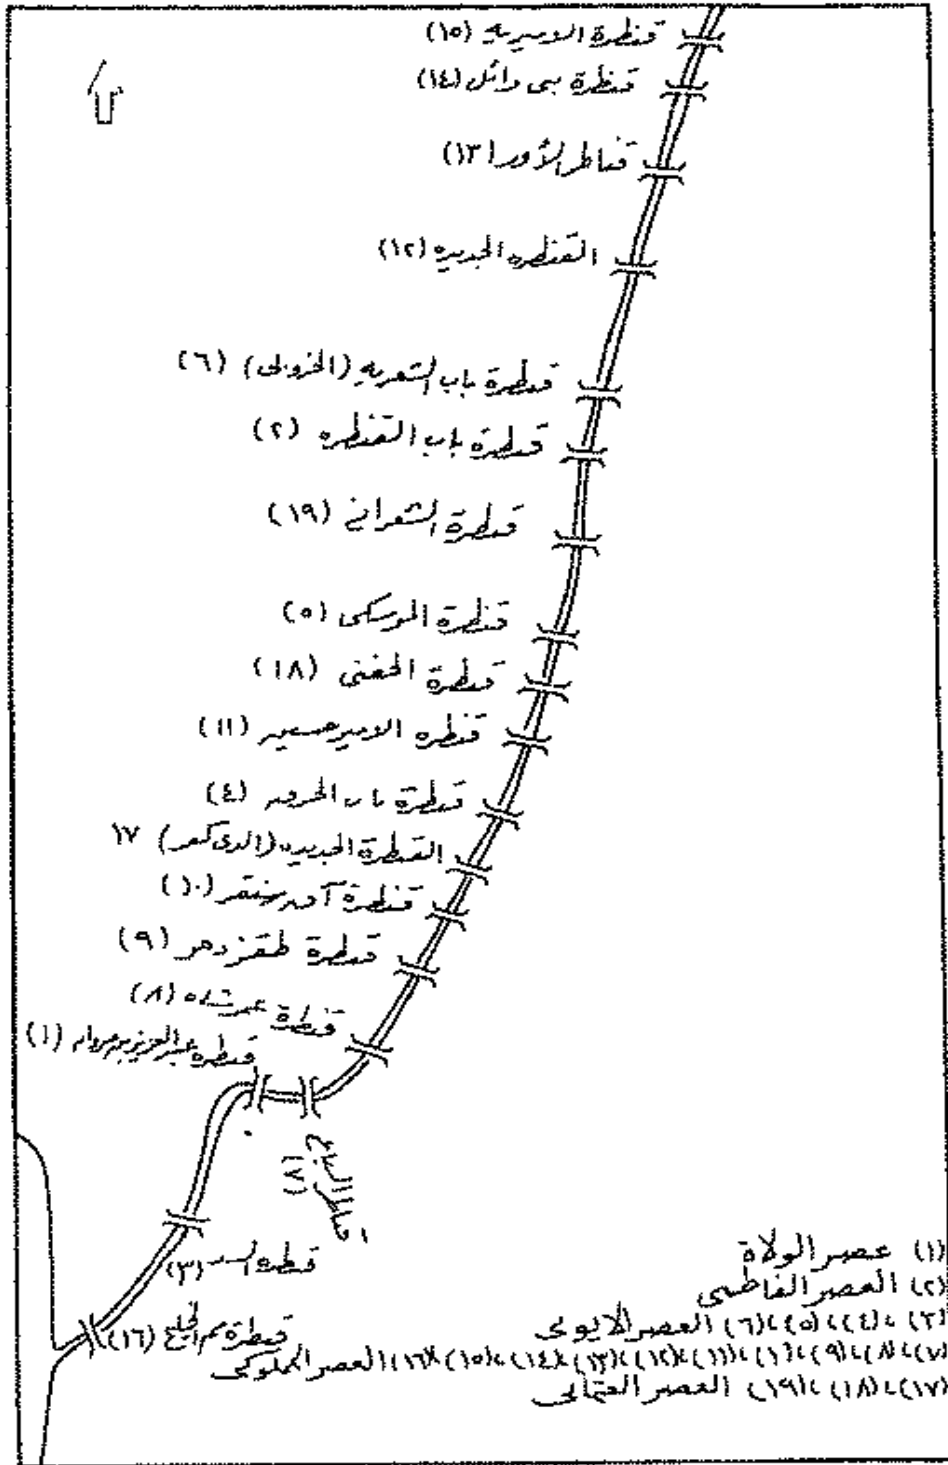 قنطرة الاميريه (١٥)
قنطرة بنى وائل (١٤)
قناطر الأوز (١٣)
القنطره الجديده (١٢)
قنطرة باب الشعريه (الخروبى) (٦)
قنطرة باب القنطره (٢)
قنطرة الشعرانى (١٩)
قنطرة الموسكى (٥)
قنطرة الحفنى (١٨)
قنطره الامير حسين (١١)
قنطرة باب الخرق (٤)
القنطرة الجديده (الذى كفر) ١٧
قنطرة آق سنقر (١٠)
قنطرة طقزدمر (٩)
قنطرة عمر شاه (٨)
قنطره عبد العزيز بن مروان (١)
قناطر السباع (٧)
قنطره السد (٣)
قنطرة فم الخليج (١٦)
(١) عصر الولاة
(٢) العصر الفاطمى
(٣)، (٤)، (٥)، (٦) العصر الايوبى
(٧)، (٨)، (٩)، (١٠)، (١١)، (١٢)، (١٣)، (١٤)، (١٥)، (١٦) العصر المملوكى
(١٧)، (١٨)، (١٩) العصر العثمانى